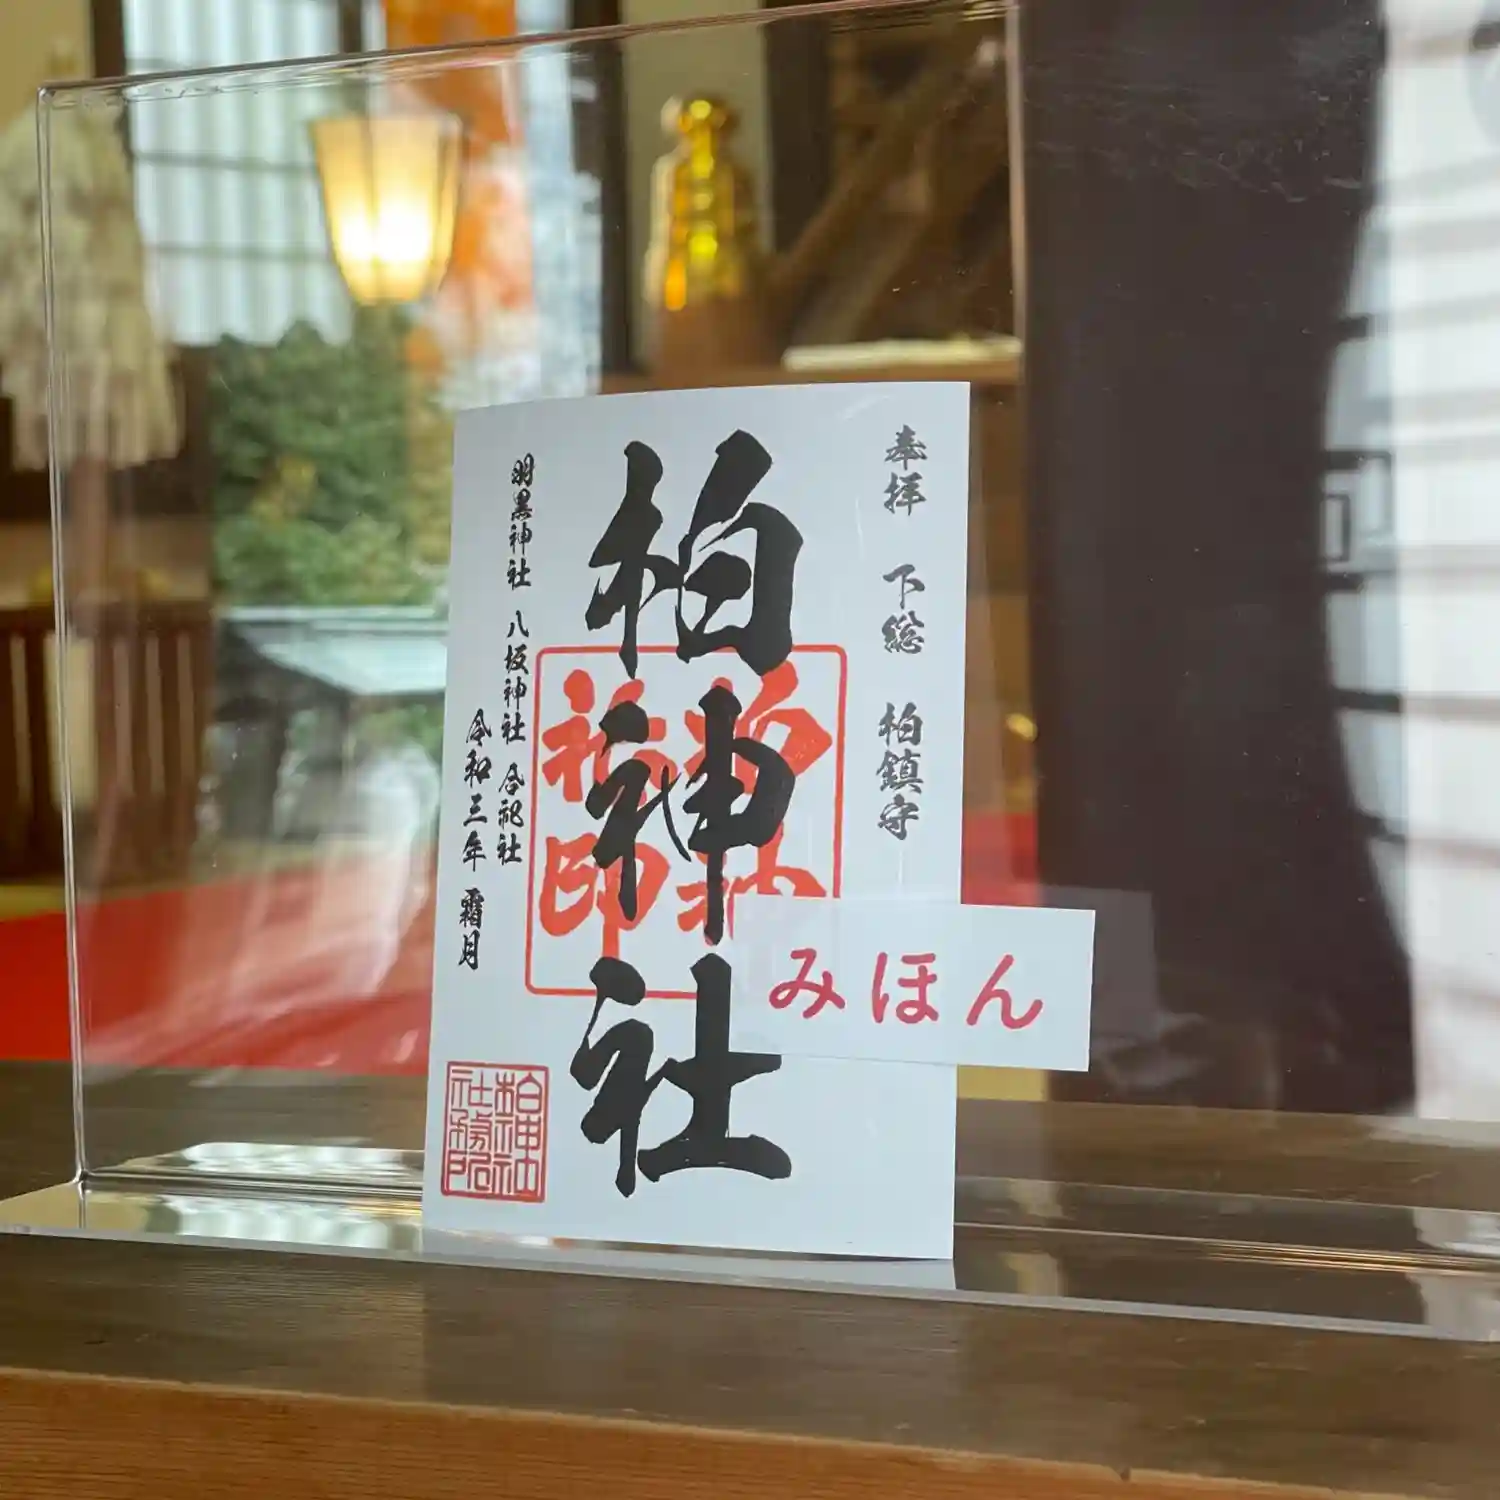 奉拝 下総 柏鎮守
柏神社
羽黒神社 八坂神社 合祀社
令和三年 霜月
柏神社
社務所
みほん